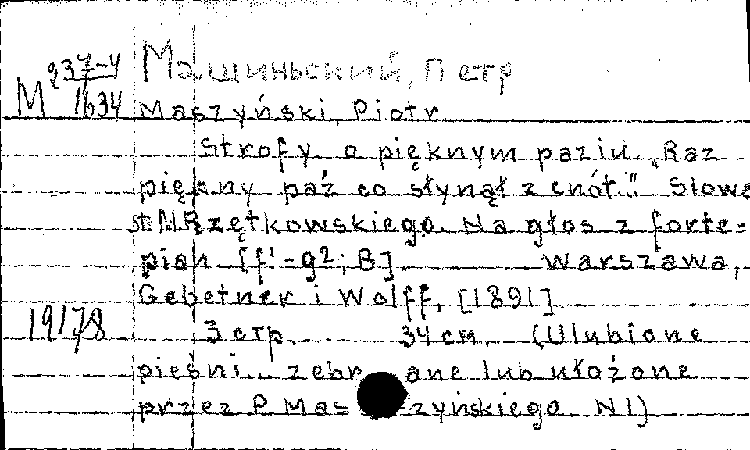 М 237-4
1634
Машиньский, Петр
Maszyński, Piotr
Strofy o pięknym paziu. „Raz
piękny paź co słynął z cnót." Słowa
M. Rzętkowskiego. Na głos z forte-
pian [f¹-g²; B] Warszawa,
Gebetner i Wolff, [1891]
19178
3 стр. 34 см. (Ulubione
pieśni.. zebrane lub ułożone
przez P. Maszczyńskiego. N 1)